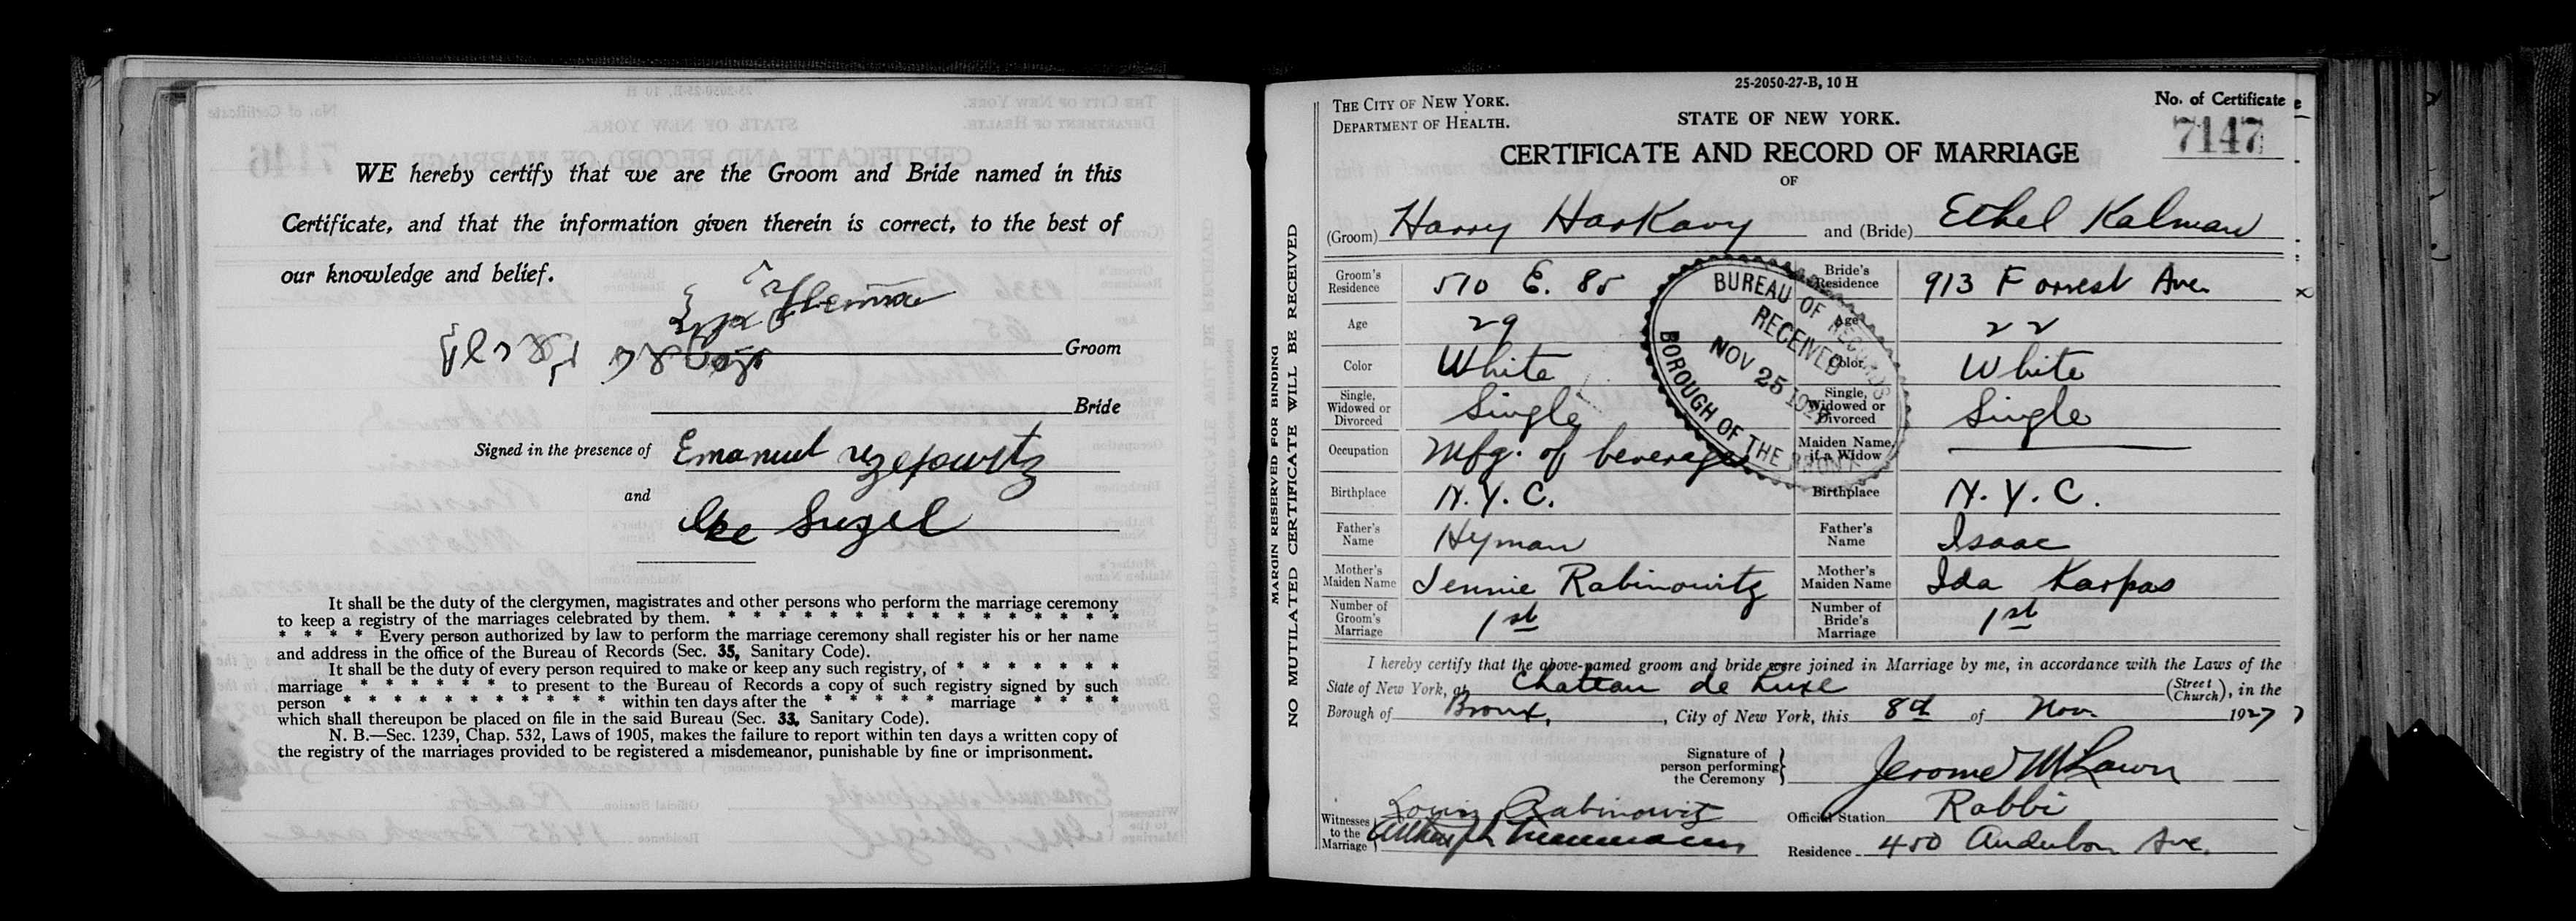 WE hereby certify that we are the Groom and Bride named in this
Certificate, and that the information given therein is correct, to the best of
our knowledge and belief.
Groom
Bride
Signed in the presence of Emanuel
and Ike
It shall be the duty of the clergymen, magistrates and other persons who perform the marriage ceremony
to keep a registry of the marriages celebrated by them. * * * * * * * * * * * * * * *
* * * * Every person authorized by law to perform the marriage ceremony shall register his or her name
and address in the office of the Bureau of Records (Sec. 35, Sanitary Code).
It shall be the duty of every person required to make or keep any such registry, of * * * * * * *
marriage * * * * * * to present to the Bureau of Records a copy of such registry signed by such
person * * * * * * * * * * within ten days after the * * * * * marriage * * * *
which shall thereupon be placed on file in the said Bureau (Sec. 33, Sanitary Code).
N. B.—Sec. 1239, Chap. 532, Laws of 1905, makes the failure to report within ten days a written copy of
the registry of the marriages provided to be registered a misdemeanor, punishable by fine or imprisonment.
MARGIN RESERVED FOR BINDING
NO MUTILATED CERTIFICATE WILL BE RECEIVED
25-2050-27-B, 10 H
THE CITY OF NEW YORK.
DEPARTMENT OF HEALTH.
STATE OF NEW YORK.
No. of Certificate
7147
CERTIFICATE AND RECORD OF MARRIAGE
OF
(Groom) Harry Harkavy and (Bride) Ethel Kalman
Groom's Residence 510 E. 85 Bride's Residence 913 Forrest Ave.
Age 29 Age 22
Color White Color White
Single, Widowed or Divorced Single Single, Widowed or Divorced Single
Occupation Mfg. of beverages Maiden Name, if a Widow
Birthplace N.Y.C. Birthplace N.Y.C.
Father's Name Hyman Father's Name Isaac
Mother's Maiden Name Jennie Rabinowitz Mother's Maiden Name Ida Karpas
Number of Groom's Marriage 1st Number of Bride's Marriage 1st
BUREAU OF RECORDS
RECEIVED
NOV 25 1927
BOROUGH OF THE BRONX
I hereby certify that the above-named groom and bride were joined in Marriage by me, in accordance with the Laws of the
State of New York, at Chateau de Luxe (Street Church), in the
Borough of Bronx, , City of New York, this 8th of Nov. 1927
Signature of person performing the Ceremony Jerome
Witnesses to the Marriage Louis Rabinowitz
Official Station Rabbi
Residence 450 Audubon Ave.